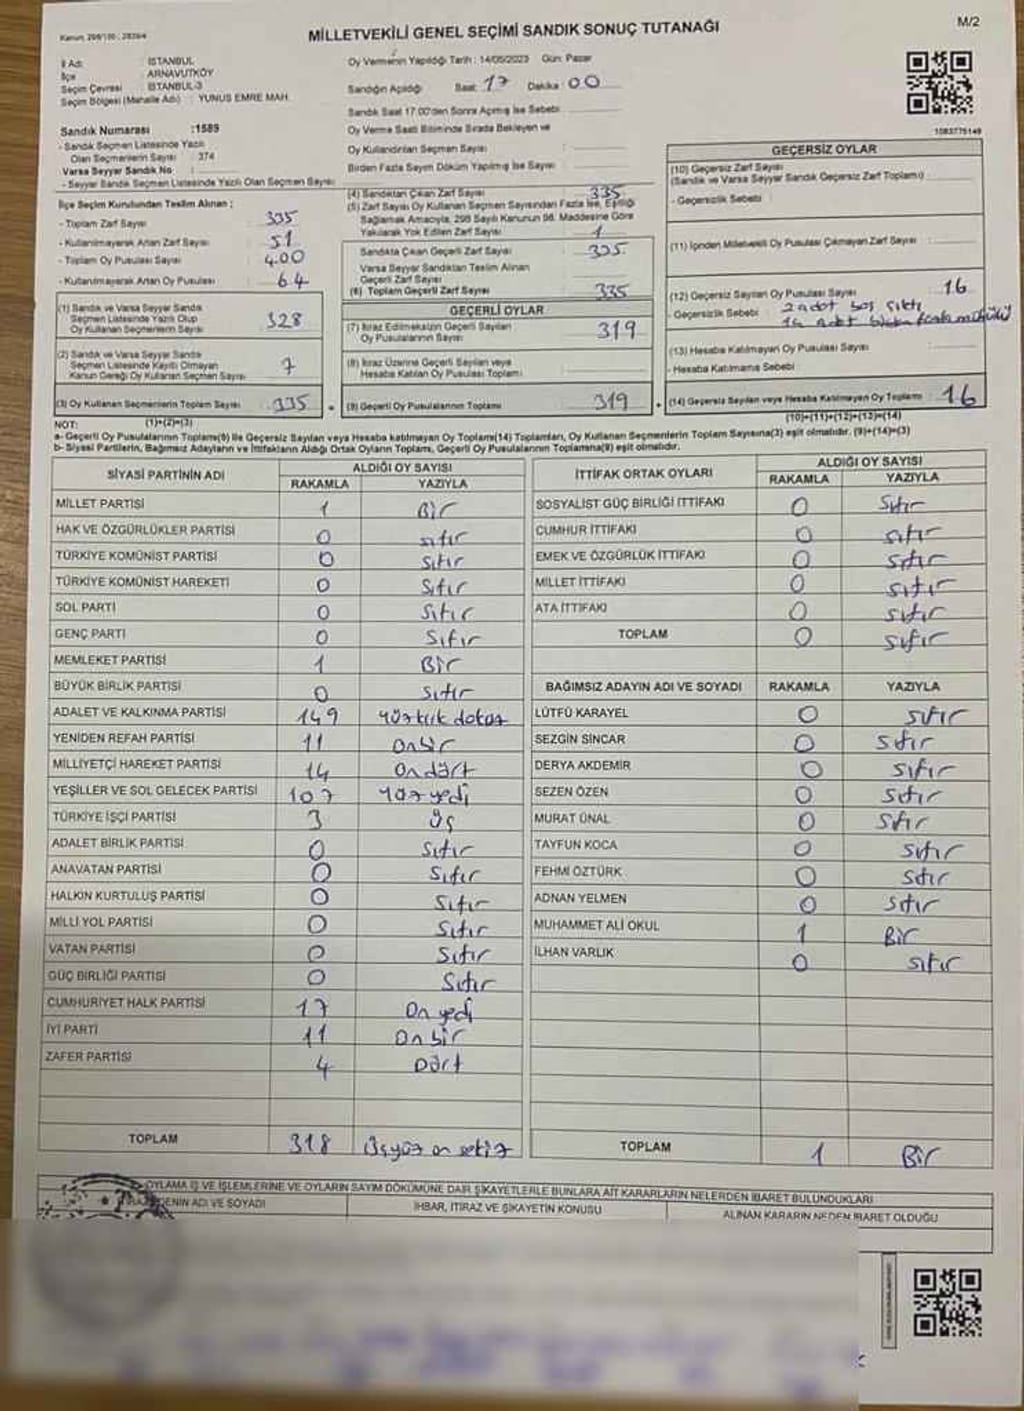 Kanun: 298/100 ; 2839/4
MİLLETVEKİLİ GENEL SEÇİMİ SANDIK SONUÇ TUTANAĞI
M/2
İl Adı : İSTANBUL
İlçe : ARNAVUTKÖY
Seçim Çevresi : İSTANBUL-3
Seçim Bölgesi (Mahalle Adı) : YUNUS EMRE MAH.
Oy Vermenin Yapıldığı Tarih : 14/05/2023 Gün: Pazar
Sandığın Açıldığı Saat: 17 Dakika: 00
Sandık Saat 17:00'den Sonra Açılmış İse Sebebi :
Sandık Numarası :1589
- Sandık Seçmen Listesinde Yazılı
Olan Seçmenlerin Sayısı : 374
Varsa Seyyar Sandık No :
- Seyyar Sandık Seçmen Listesinde Yazılı Olan Seçmen Sayısı
Oy Verme Saati Bitiminde Sırada Bekleyen ve
Oy Kullandırılan Seçmen Sayısı :
Birden Fazla Sayım Döküm Yapılmış İse Sayısı :
1083775149
İlçe Seçim Kurulundan Teslim Alınan ;
- Toplam Zarf Sayısı : 335
- Kullanılmayarak Artan Zarf Sayısı : 51
- Toplam Oy Pusulası Sayısı : 400
- Kullanılmayarak Artan Oy Pusulası : 64
(1) Sandık ve Varsa Seyyar Sandık
Seçmen Listesinde Yazılı Olup
Oy Kullanan Seçmenlerin Sayısı 328
(2) Sandık ve Varsa Seyyar Sandık
Seçmen Listesinde Kayıtlı Olmayan
Kanun Gereği Oy Kullanan Seçmen Sayısı 7
(3) Oy Kullanan Seçmenlerin Toplam Sayısı : 335
(1)+(2)=(3)
(4) Sandıktan Çıkan Zarf Sayısı : 335
(5) Zarf Sayısı Oy Kullanan Seçmen Sayısından Fazla İse, Eşitliği
Sağlamak Amacıyla, 298 Sayılı Kanunun 98. Maddesine Göre
Yakılarak Yok Edilen Zarf Sayısı : 1
Sandıkta Çıkan Geçerli Zarf Sayısı : 335
Varsa Seyyar Sandıktan Teslim Alınan
Geçerli Zarf Sayısı :
(6) Toplam Geçerli Zarf Sayısı : 335
GEÇERLİ OYLAR
(7) İtiraz Edilmeksizin Geçerli Sayılan
Oy Pusulalarının Sayısı : 319
(8) İtiraz Üzerine Geçerli Sayılan veya
Hesaba Katılan Oy Pusulası Toplamı :
(9) Geçerli Oy Pusulalarının Toplamı : 319
GEÇERSİZ OYLAR
(10) Geçersiz Zarf Sayısı
(Sandık ve Varsa Seyyar Sandık Geçersiz Zarf Toplamı) :
- Geçersizlik Sebebi :
(11) İçinden Milletvekili Oy Pusulası Çıkmayan Zarf Sayısı :
(12) Geçersiz Sayılan Oy Pusulası Sayısı : 16
- Geçersizlik Sebebi : 2 adet boş çıktı
14 adet birden fazla mühürlü
(13) Hesaba Katılmayan Oy Pusulası Sayısı :
- Hesaba Katılmama Sebebi :
(14) Geçersiz Sayılan veya Hesaba Katılmayan Oy Toplamı : 16
(10)+(11)+(12)+(13)=(14)
NOT:
a- Geçerli Oy Pusulalarının Toplamı(9) ile Geçersiz Sayılan veya Hesaba katılmayan Oy Toplamı(14) Toplamları, Oy Kullanan Seçmenlerin Toplam Sayısına(3) eşit olmalıdır. (9)+(14)=(3)
b- Siyasi Partilerin, Bağımsız Adayların ve İttifakların Aldığı Ortak Oyların Toplamı, Geçerli Oy Pusulalarının Toplamına(9) eşit olmalıdır.
SİYASİ PARTİNİN ADI ALDIĞI OY SAYISI
RAKAMLA YAZIYLA
MİLLET PARTİSİ 1 Bir
HAK VE ÖZGÜRLÜKLER PARTİSİ 0 sıfır
TÜRKİYE KOMÜNİST PARTİSİ 0 Sıfır
TÜRKİYE KOMÜNİST HAREKETİ 0 Sıfır
SOL PARTİ 0 Sıfır
GENÇ PARTİ 0 Sıfır
MEMLEKET PARTİSİ 1 Bir
BÜYÜK BİRLİK PARTİSİ 0 Sıfır
ADALET VE KALKINMA PARTİSİ 149 Yüzkırk dokuz
YENİDEN REFAH PARTİSİ 11 Onbir
MİLLİYETÇİ HAREKET PARTİSİ 14 Ondört
YEŞİLLER VE SOL GELECEK PARTİSİ 107 Yüz yedi
TÜRKİYE İŞÇİ PARTİSİ 3 Üç
ADALET BİRLİK PARTİSİ 0 Sıfır
ANAVATAN PARTİSİ 0 Sıfır
HALKIN KURTULUŞ PARTİSİ 0 Sıfır
MİLLİ YOL PARTİSİ 0 Sıfır
VATAN PARTİSİ 0 Sıfır
GÜÇ BİRLİĞİ PARTİSİ 0 Sıfır
CUMHURİYET HALK PARTİSİ 17 On yedi
İYİ PARTİ 11 On bir
ZAFER PARTİSİ 4 Dört
TOPLAM 318 Üçyüz on sekiz
İTTİFAK ORTAK OYLARI ALDIĞI OY SAYISI
RAKAMLA YAZIYLA
SOSYALİST GÜÇ BİRLİĞİ İTTİFAKI 0 Sıfır
CUMHUR İTTİFAKI 0 sıfır
EMEK VE ÖZGÜRLÜK İTTİFAKI 0 sıfır
MİLLET İTTİFAKI 0 sıfır
ATA İTTİFAKI 0 sıfır
TOPLAM 0 sıfır
BAĞIMSIZ ADAYIN ADI VE SOYADI RAKAMLA YAZIYLA
LÜTFÜ KARAYEL 0 sıfır
SEZGİN SİNCAR 0 sıfır
DERYA AKDEMİR 0 sıfır
SEZEN ÖZEN 0 sıfır
MURAT ÜNAL 0 sıfır
TAYFUN KOCA 0 sıfır
FEHMİ ÖZTÜRK 0 sıfır
ADNAN YELMEN 0 sıfır
MUHAMMET ALİ OKUL 1 Bir
İLHAN VARLIK 0 sıfır
TOPLAM 1 Bir
OYLAMA İŞ VE İŞLEMLERİNE VE OYLARIN SAYIM DÖKÜMÜNE DAİR ŞİKAYETLERLE BUNLARA AİT KARARLARIN NELERDEN İBARET BULUNDUKLARI
ADI VE SOYADI İHBAR, İTİRAZ VE ŞİKAYETİN KONUSU ALINAN KARARIN NEDEN İBARET OLDUĞU